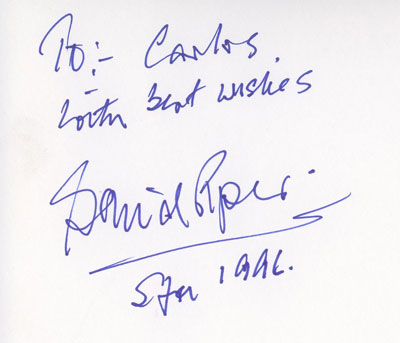 To:- Carlos,
with best wishes
David Piper.
1996.